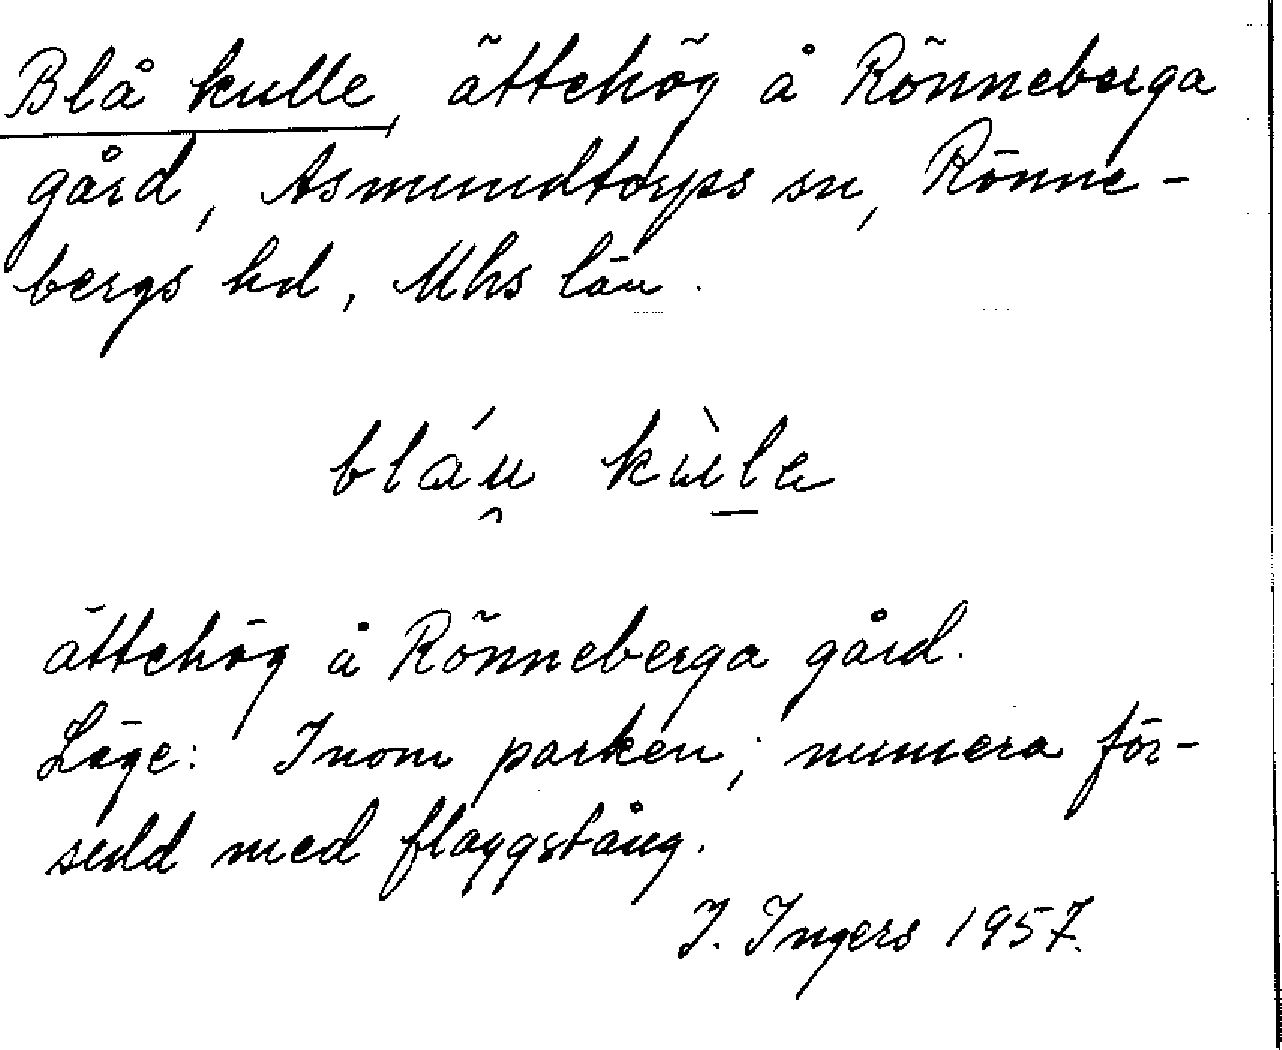 Blå kulle, ättehög å Rönneberga
gård, Asmundtorps sn, Rönne-
bergs hd, Mhs län.
bláu̯ kùl̲e
ättehög å Rönneberga gård.
Läge: Inom parken; numera för-
sedd med flaggstång.
I. Ingers 1957.